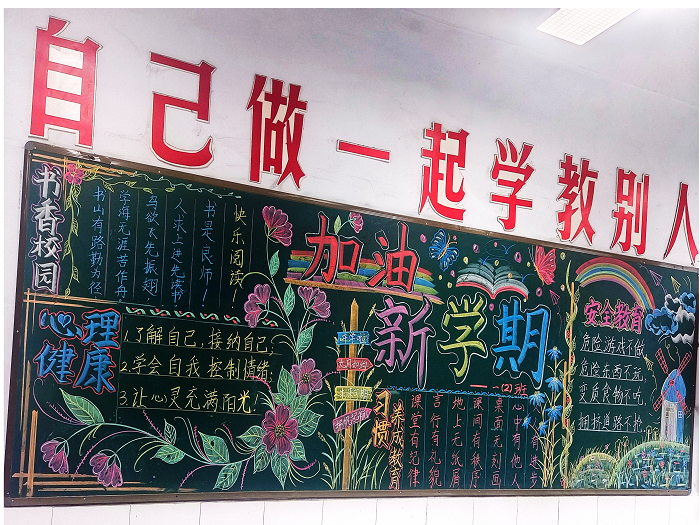 自己做 一起学 教别人
书香校园
快乐阅读！
书是良师！
人求上进先读书
鸟欲飞先振翅
学海无涯苦作舟
书山有路勤为径
心理健康
1.了解自己，接纳自己；
2.学会自我控制情绪；
3.让心灵充满阳光！
加油
新学期
一(2)班
习惯养成教育
心中有他人
桌面无刻画
课间有秩序
地上无纸屑
言行有礼貌
课堂有纪律
有进步
安全教育
危险游戏不做
危险东西不玩
变质食物不吃
拥挤道路不抢